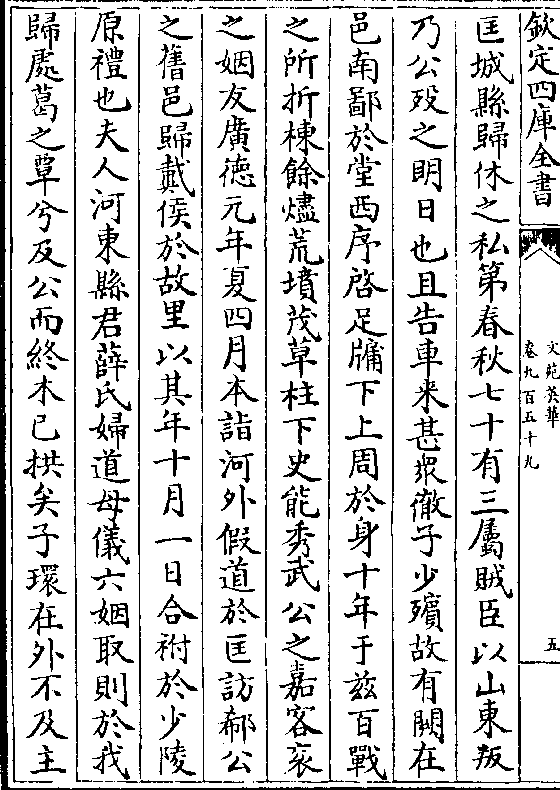 欽定四庫全書
文苑英華
卷九百五十九
五
匡城縣歸休之私第春秋七十有三屬賊臣以山東叛
乃公歿之明日也且告車来甚衆徹子少殯故有闕在
邑南鄙於堂西序啓足牖下上周於身十年于兹百戰
之所折棟餘燼荒墳茂草柱下史能秀武公之嘉客哀
之姻友廣徳元年夏四月本詣河外假道於匡訪郗公
之舊邑歸戴侯於故里以其年十月一日合祔於少陵
原禮也夫人河東縣君薛氏婦道母儀六姻取則於我
歸處葛之覃兮及公而終木已拱矣子環在外不及主